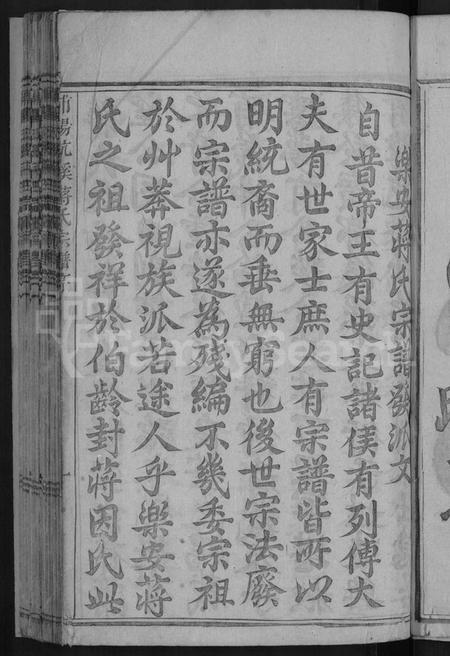 樂安蔣氏宗譜發派文
自昔帝王有史記諸侯有列傳大
夫有世家士庶人有宗譜皆所以
明統裔而垂無窮也後世宗法廢
而宗譜亦遂為殘編不幾委宗祖
於艸莽視族派若途人乎樂安蔣
氏之祖發祥於伯齡封蔣因氏此
FamilySearch